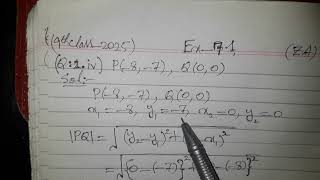 (9th class 2025) Ex 7.1
(Q:1.iv) P(-8,-7), Q(0,0) (ZA)
Sol:-
P(-8,-7), Q(0,0)
x₁=-8, y₁=-7, x₂=0, y₂=0
|PQ| = √(y₂-y₁)²+ x₁)²
= √{0-(-7)}²+ -(-8)}²